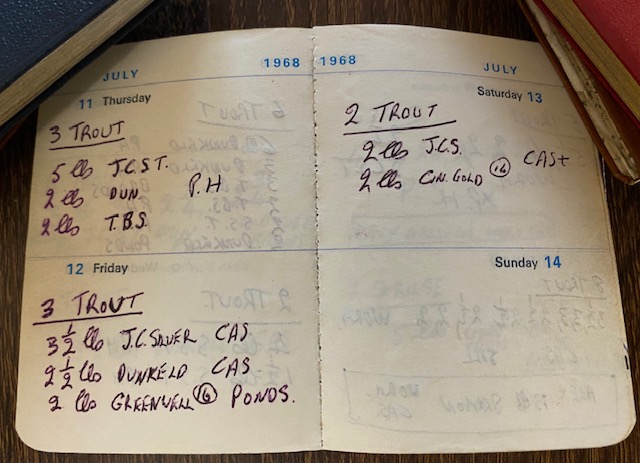 JULY 1968
11 Thursday
3 TROUT
5 lbs J.C.S.T.
2 lbs DUN. P.H
2 lbs T.B.S.
12 Friday
3 TROUT
3 1/2 lbs J.C. SILVER CAS
2 1/2 lbs DUNKELD CAS
2 lbs GREENWELL 16 PONDS.
1968 JULY
Saturday 13
2 TROUT
2 lbs J.C.S.
2 lbs CIN. GOLD 14 CAS+
Sunday 14